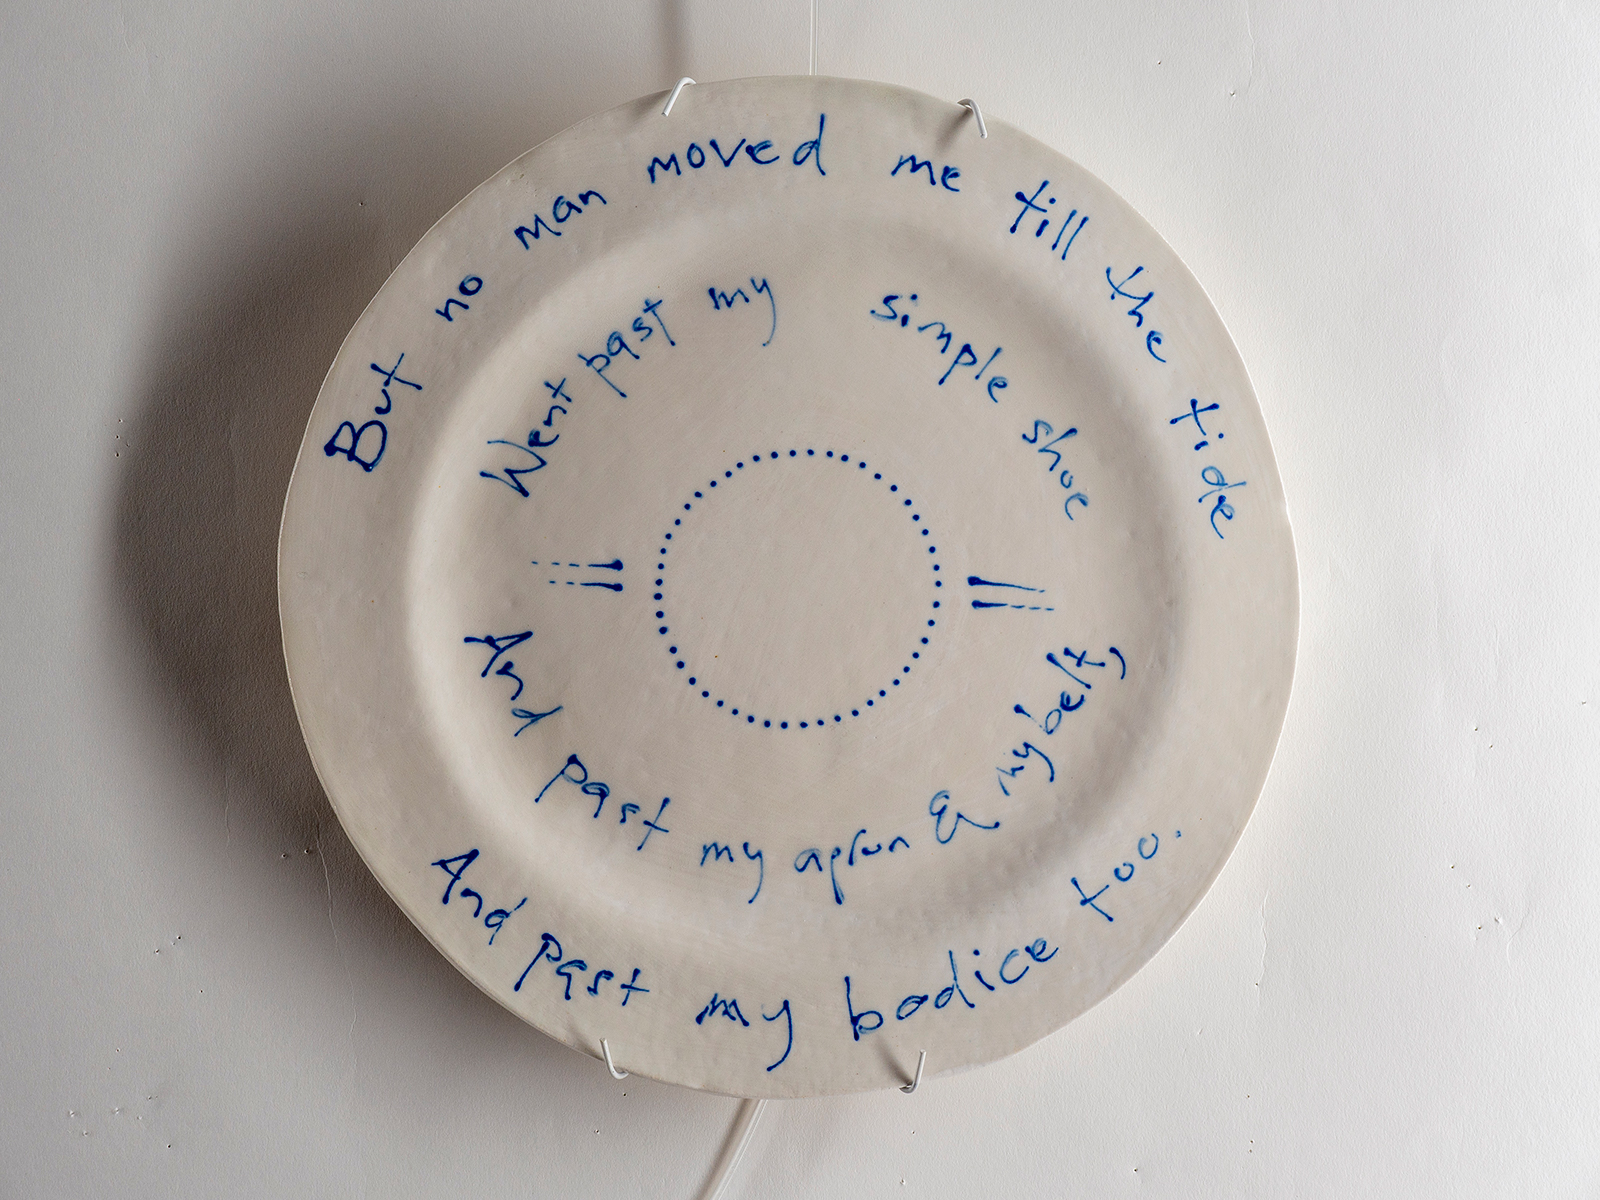 But no man moved me till the tide
Went past my simple shoe
And past my apron & my belt,
And past my bodice too.